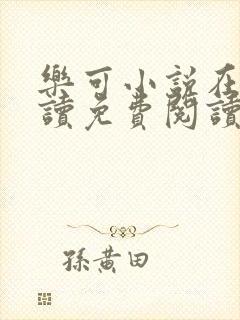 樂可小說在
讀免費閱讀
孫黃田